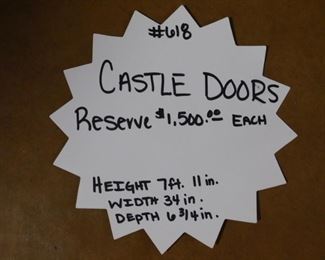 #618
CASTLE DOORS
Reserve $1,500.00 EACH
HEIGHT 7ft. 11in.
WIDTH 34 in.
DEPTH 6 3/4 in.